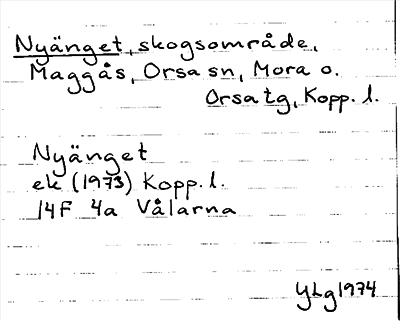 Nyänget, skogsområde,
Maggås, Orsa sn, Mora o.
Orsa tg, Kopp. l.
Nyänget
ek (1973) Kopp. l.
14F 4a Vålarna
YLg 1974